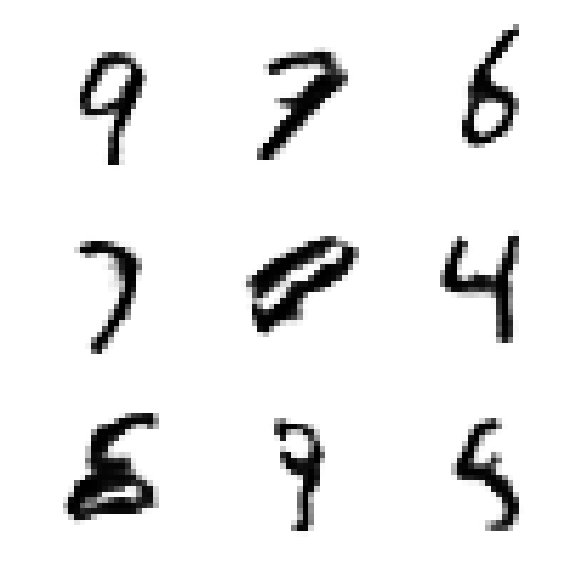 9 7 6
7 0 4
6 9 5